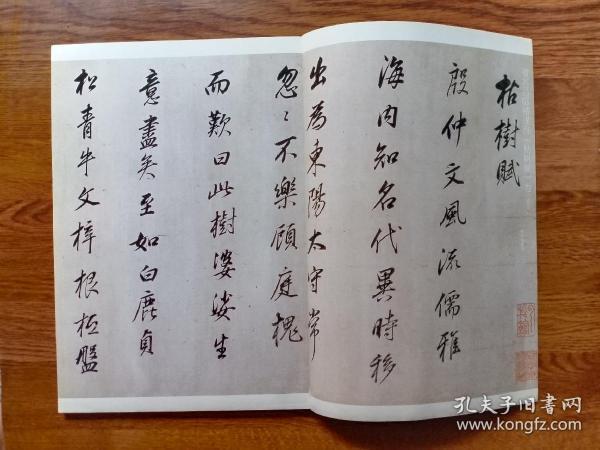 枯樹賦
殷仲文風流儒雅
海内知名代異時移
出為東陽太守常
忽〻不樂顧庭槐
而歎曰此樹婆娑生
意盡矣至如白鹿貞
松青牛文梓根柢盤
孔夫子旧書网
kongfz.com